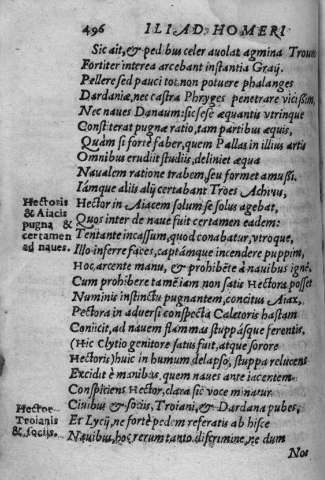 496 ILIAD. HOMERI
Sic ait, & pedibus celer avolat agmina Troum
Fortiter interea arcebant instantia Graij.
Pellere sed paucitot non potuere phalanges
Dardaniæ, nec castra Phryges penetrare vicissim,
Nec naues Danaum: sic sese æquantis vtrinque
Constiterat pugnæ ratio, tam partibus æquis,
Quàm si fortè faber, quem Pallas in illius artis
Omnibus erudijt studijs, deliniet æqua
Naualem ratione trabem, seu formet amussi.
Iamque alijs alij certabant Troes Achiuis,
Hectoris & Aiacis pugna & certamen ad naues.
Hector in Aiacem solum se solus agebat,
Quos inter de naue fuit certamen eadem:
Tentante incassum, quod conabatur, vtroque,
Illo inferre faces, captámque incendere puppim,
Hoc arcente manu, & prohibẽte à nauibus ignẽ,
Cum prohibere tamẽ iam non satis Hectora posset
Numinis instinctu pugnantem, concitus Aiax,
Pectora in aduersi conspecta Caletoris hastam
Coniicit, ad nauem flammas stuppásque ferentis,
(Hic Clytio genitore satus fuit, atque sorore
Hectoris) huic in humum delapso, stuppa relucens
Excidit è manibus, quem naues ante iacentem
Conspiciens Hector, clara sic voce minatur
Hector Troianis & socijs.
Ciuibus & socijs, Troiani, & Dardana pubes,
Et Lycij, ne fortè pedem referatis ab hisce
Nauibus, hoc rerum tanto discrimine, ne dum
Nos